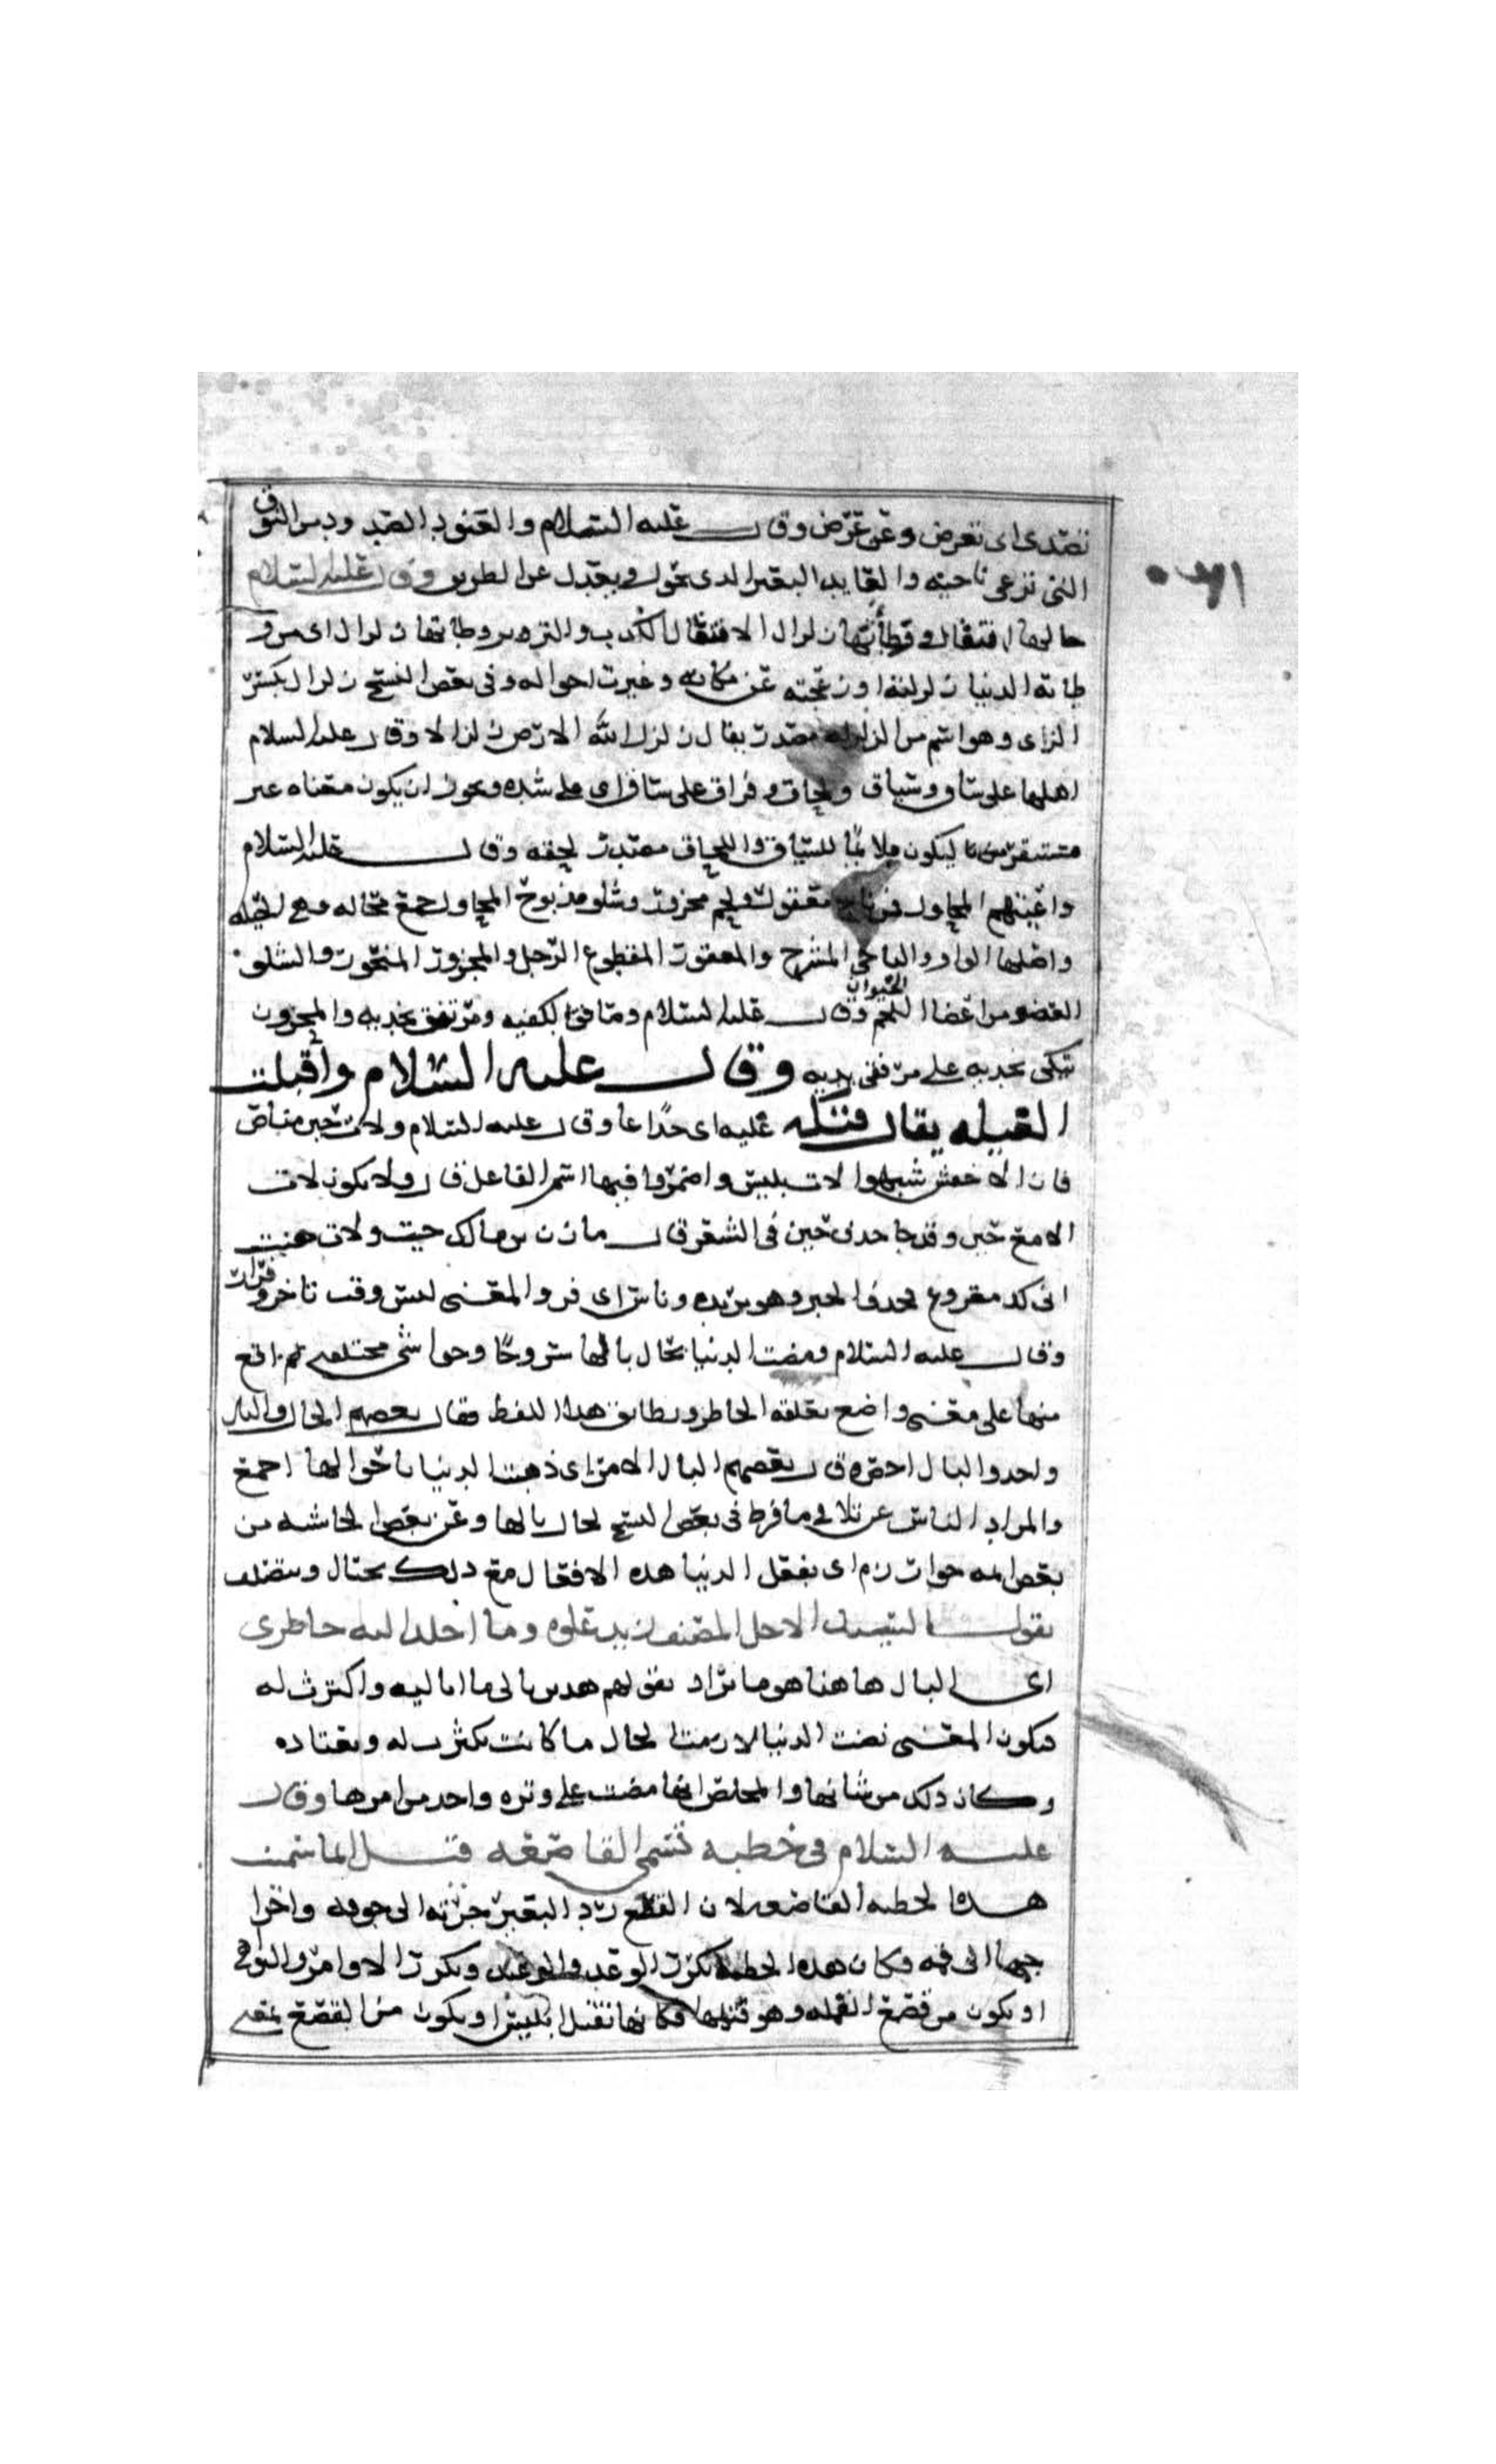 تصدى اى تعرض وعن عرض وقال عليه السلام والعنود الصد وبين النوق
التى ترعى ناحيه والعايد البعير الدى يحول ويعدل عن الطريق وقال عليه السلام
حالها افتعال ووطأتها زلزال الافتعال الكذب والتزوير وطاتها زلزال اى من و
طاته الدنيا زلزلته اوزعجته عن مكانه وغيرت احواله وفى بعض النسخ زلزال بكسر
الزاى وهو اسم من الزلزله مصدر يقال زلزل الله الارض زلزالا وقال عليه السلام
اهلها على ساق وسياق ولحاق وفراق على ساق اى على شده ويجوز ان يكون معناه غير
مستقرين ليكون ملائما للسياق واللحاق مصدر لحقه وقال عليه السلام
واعيتهم المحاول فمن ناج معقور ولحم مجزور وشلو مذبوح المحاول جمع محاله وهى الحيله
واصلها الواو والناجى المسرح والمعقور المقطوع الرجل والمجزور المنحور والشلو
العضو من اعضا اللحم وقال عليه السلام ومتافق بكفيه ومرتفق بخديه والمحزون
الحيوان
يتكى بخديه على مرفقى يديه وقال عليه السلام واقبلت
الغيله يقال قتله غيله اى خداعا وقال عليه السلام ولات حين مناص
قال الاخفش شبهوا لات بليس واضمروا فيها اسم الفاعل قال ولا يكون لات
الا مع حين وقد جا حذف حين فى الشعر قال مازن بن مالك حنت ولات هنت
انى لك مقروع فحذف الحين وهو يريده وناص اى فر والمعنى ليس وقت تاخر و
فرار
وقال عليه السلام ومضت الدنيا بحال بالها شروحا وحواشى مختلفه لم اقع
منها على معنى واضح يعلقه الخاطر ويطابق هذا اللفظ فقال بعضهم الحال والبال
واحد والبال احقره قال بعضهم البال الامر اى ذهبت الدنيا باحوالها اجمع
والمراد الناس عن تلافى ما فرط فى بعض النسخ لحال بالها وعن بعض الحاشيه من
بعض ايمه خوارزم اى بفعل الدنيا هذه الافعال مع ذلك يحتال ويتصلف
يقول السيد الاجل المصنف زيد علوه وما اخلد اليه خاطرى
اى البال هاهنا هو ما يراد بقولهم هدين بالى ما اباليه واكترث له
فيكون المعنى مضت الدنيا لحال ما كانت تكترث له وتعتاده
وكان ذلك من شانها والمخلص انها مضت على وتره واحد من امرها وقال
عليه السلام فى خطبه تسمى القاصعه قيل انما سميت
هذه الخطبه القاصعه لان القصع رد البعير جرته الى جوفه واخرا
جها الى فمه وكان هذه الخطبه تكرر الوعد والوعيد وتكرر الاوامر والنواهى
او يكون من قصع القمله وهو قتلها فكانها تقتل ابليس او يكون من القصع بمعنى